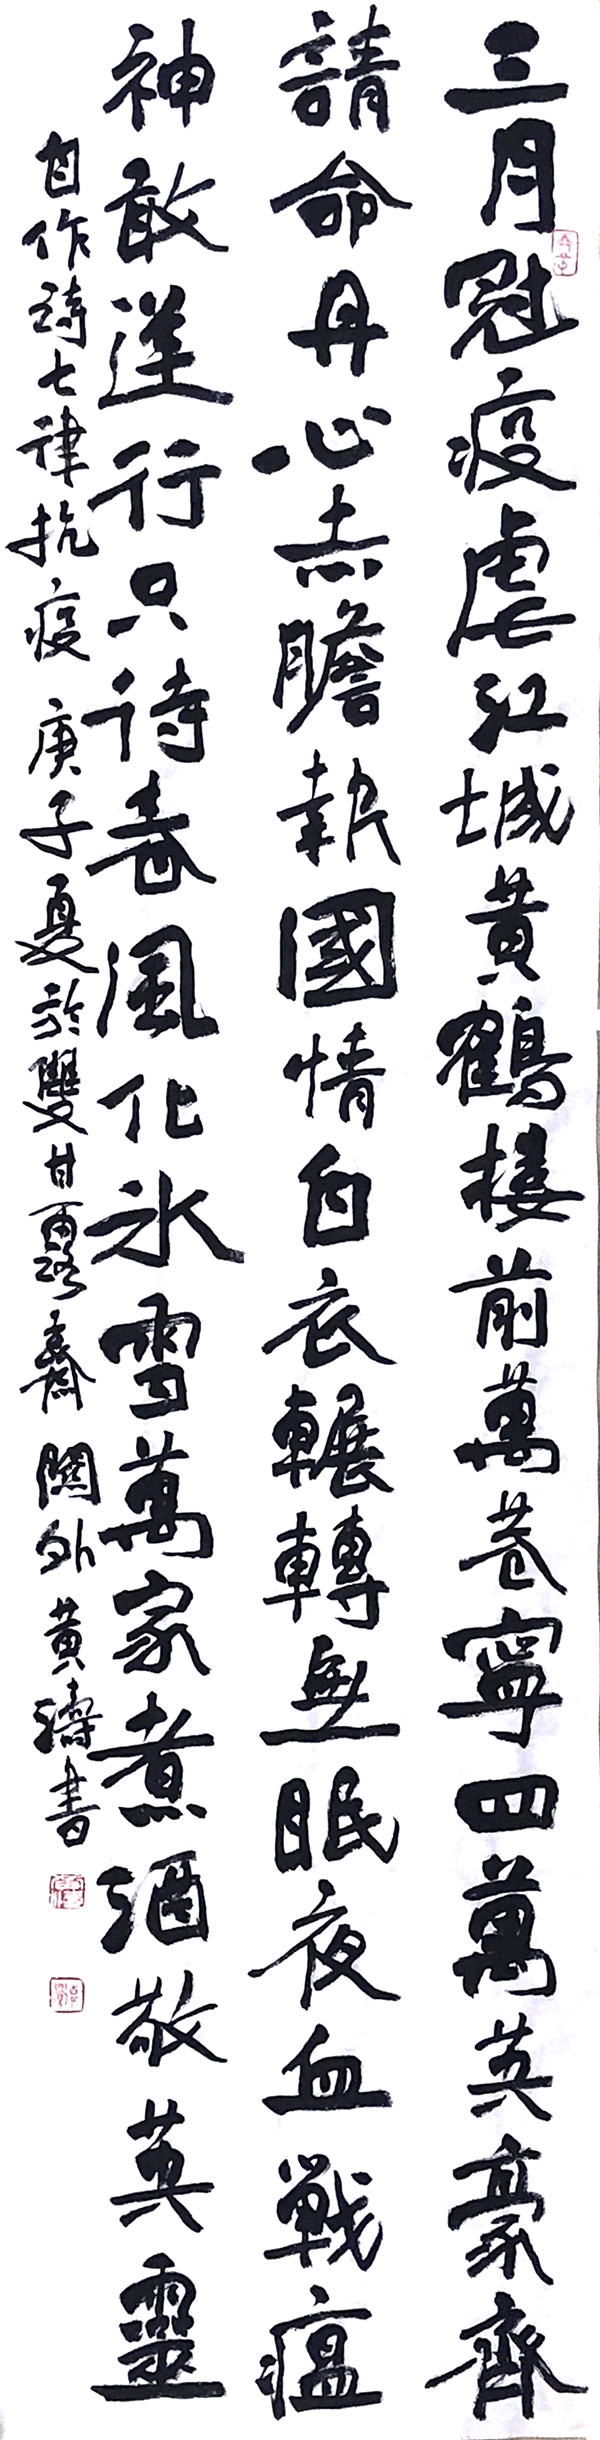 三月冠疫虐江城黄鶴楼前萬巷寧四萬英豪齊
請命丹心赤膽報國情白衣輾轉無眠夜血戰瘟
神敢逆行只待春風化冰雪萬家煮酒敬英靈
自作詩七律抗疫 庚子夏於雙甘露齋 關外黄濤書